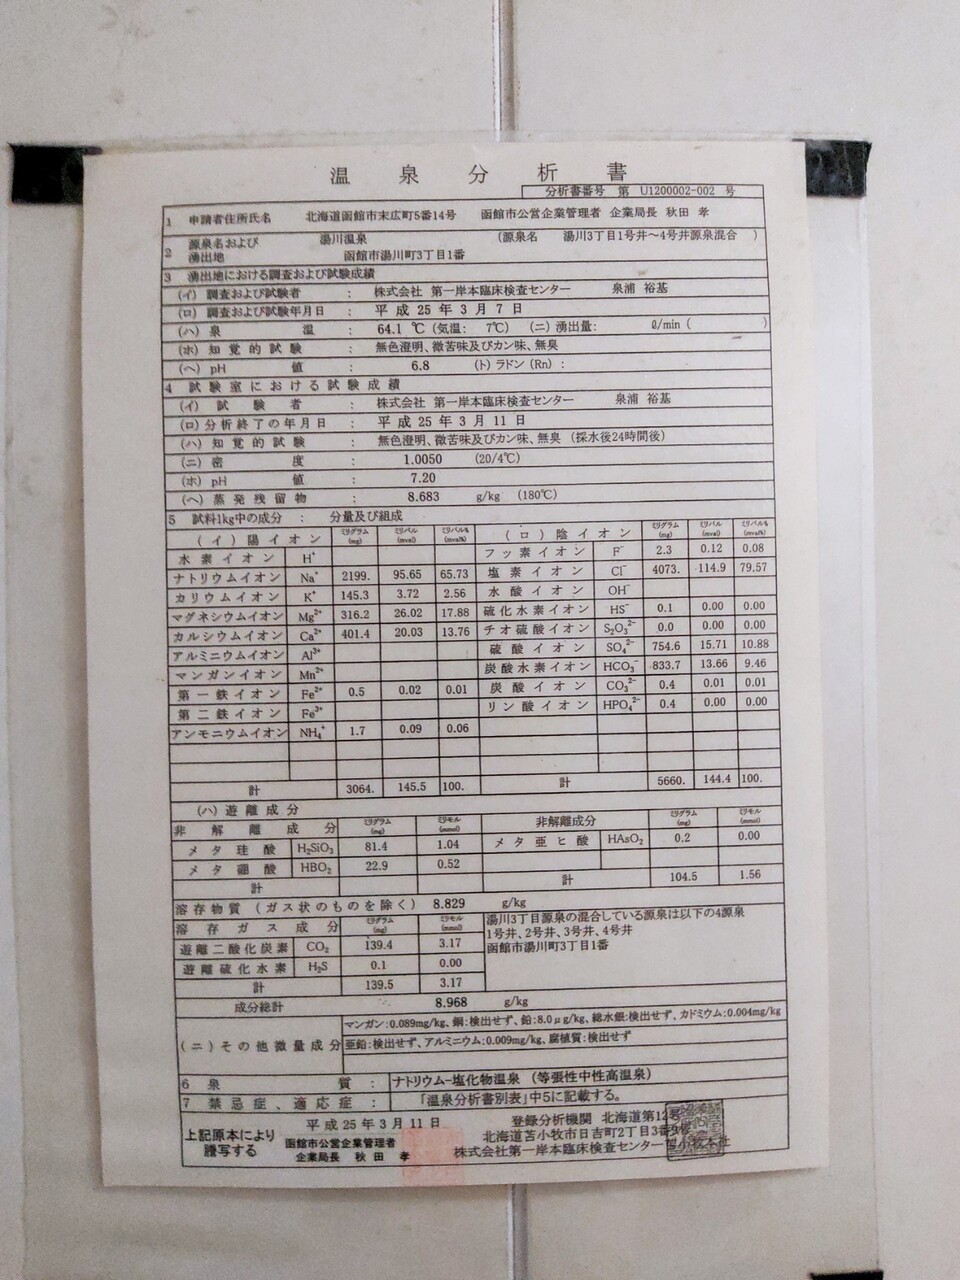 温泉分析書
分析書番号 第 U1200002-002 号
1 申請者住所氏名 北海道函館市末広町5番14号 函館市公営企業管理者 企業局長 秋田 孝
2 源泉名および湧出地 湯川温泉 (源泉名 湯川3丁目1号井～4号井源泉混合 )
函館市湯川町3丁目1番
3 湧出地における調査および試験成績
(イ) 調査および試験者 : 株式会社 第一岸本臨床検査センター 泉浦 裕基
(ロ) 調査および試験年月日 : 平成 25 年 3 月 7 日
(ハ) 泉温 : 64.1 ℃ (気温: 7℃) (ニ) 湧出量: ℓ/min ( )
(ホ) 知覚的試験 : 無色澄明、微苦味及びカン味、無臭
(ヘ) pH値 : 6.8 (ト) ラドン (Rn) :
4 試験室における試験成績
(イ) 試験者 : 株式会社 第一岸本臨床検査センター 泉浦 裕基
(ロ) 分析終了の年月日 : 平成 25 年 3 月 11 日
(ハ) 知覚的試験 : 無色澄明、微苦味及びカン味、無臭 (採水後24時間後)
(ニ) 密度 : 1.0050 (20/4℃)
(ホ) pH値 : 7.20
(ヘ) 蒸発残留物 : 8.683 g/kg (180℃)
5 試料1kg中の成分 : 分量及び組成
(イ) 陽イオン ミリグラム (mg) ミリバル (mval) ミリバル% (mval%) (ロ) 陰イオン ミリグラム (mg) ミリバル (mval) ミリバル% (mval%)
水素イオン H⁺ フッ素イオン F⁻ 2.3 0.12 0.08
ナトリウムイオン Na⁺ 2199. 95.65 65.73 塩素イオン Cl⁻ 4073. 114.9 79.57
カリウムイオン K⁺ 145.3 3.72 2.56 水酸イオン OH⁻
マグネシウムイオン Mg²⁺ 316.2 26.02 17.88 硫化水素イオン HS⁻ 0.1 0.00 0.00
カルシウムイオン Ca²⁺ 401.4 20.03 13.76 チオ硫酸イオン S₂O₃²⁻ 0.0 0.00 0.00
アルミニウムイオン Al³⁺ 硫酸イオン SO₄²⁻ 754.6 15.71 10.88
マンガンイオン Mn²⁺ 炭酸水素イオン HCO₃⁻ 833.7 13.66 9.46
第一鉄イオン Fe²⁺ 0.5 0.02 0.01 炭酸イオン CO₃²⁻ 0.4 0.01 0.01
第二鉄イオン Fe³⁺ リン酸イオン HPO₄²⁻ 0.4 0.00 0.00
アンモニウムイオン NH₄⁺ 1.7 0.09 0.06
計 3064. 145.5 100. 計 5660. 144.4 100.
(ハ) 遊離成分
非解離成分 ミリグラム (mg) ミリモル (mmol) 非解離成分 ミリグラム (mg) ミリモル (mmol)
メタ珪酸 H₂SiO₃ 81.4 1.04 メタ亜ヒ酸 HAsO₂ 0.2 0.00
メタ硼酸 HBO₂ 22.9 0.52
計 計 104.5 1.56
溶存物質 (ガス状のものを除く) 8.829 g/kg
溶存ガス成分 ミリグラム (mg) ミリモル (mmol) 湯川3丁目源泉の混合している源泉は以下の4源泉
1号井、2号井、3号井、4号井
遊離二酸化炭素 CO₂ 139.4 3.17 函館市湯川町3丁目1番
遊離硫化水素 H₂S 0.1 0.00
計 139.5 3.17
成分総計 8.968 g/kg
(ニ) その他微量成分 マンガン:0.089mg/kg、銅:検出せず、鉛:8.0μg/kg、総水銀:検出せず、カドミウム:0.004mg/kg
亜鉛:検出せず、アルミニウム:0.009mg/kg、腐植質:検出せず
6 泉質 : ナトリウム-塩化物温泉 (等張性中性高温泉)
7 禁忌症、適応症 : 「温泉分析書別表」中5に記載する。
平成 25 年 3 月 11 日 登録分析機関 北海道第12号
上記原本により謄写する 函館市公営企業管理者 北海道苫小牧市日吉町2丁目3番
企業局長 秋田 孝 株式会社第一岸本臨床検査センター苫小牧本社